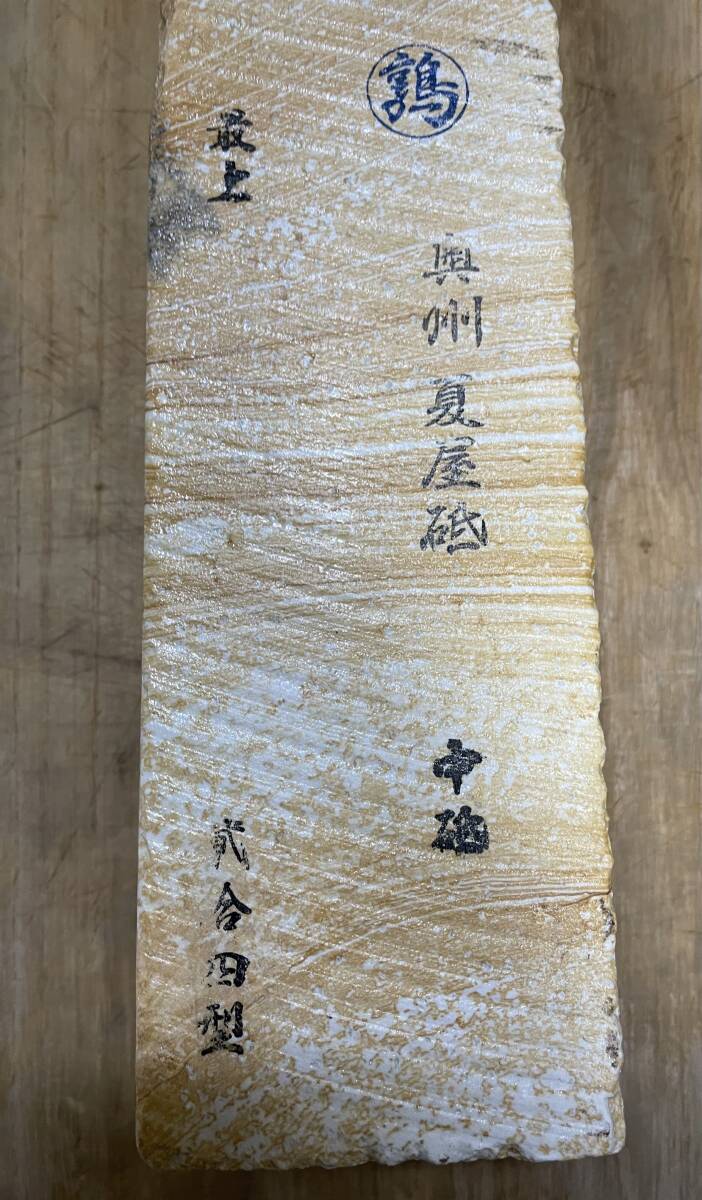 鶉
奥州 夏屋砥
中砥
最上
貳合四型